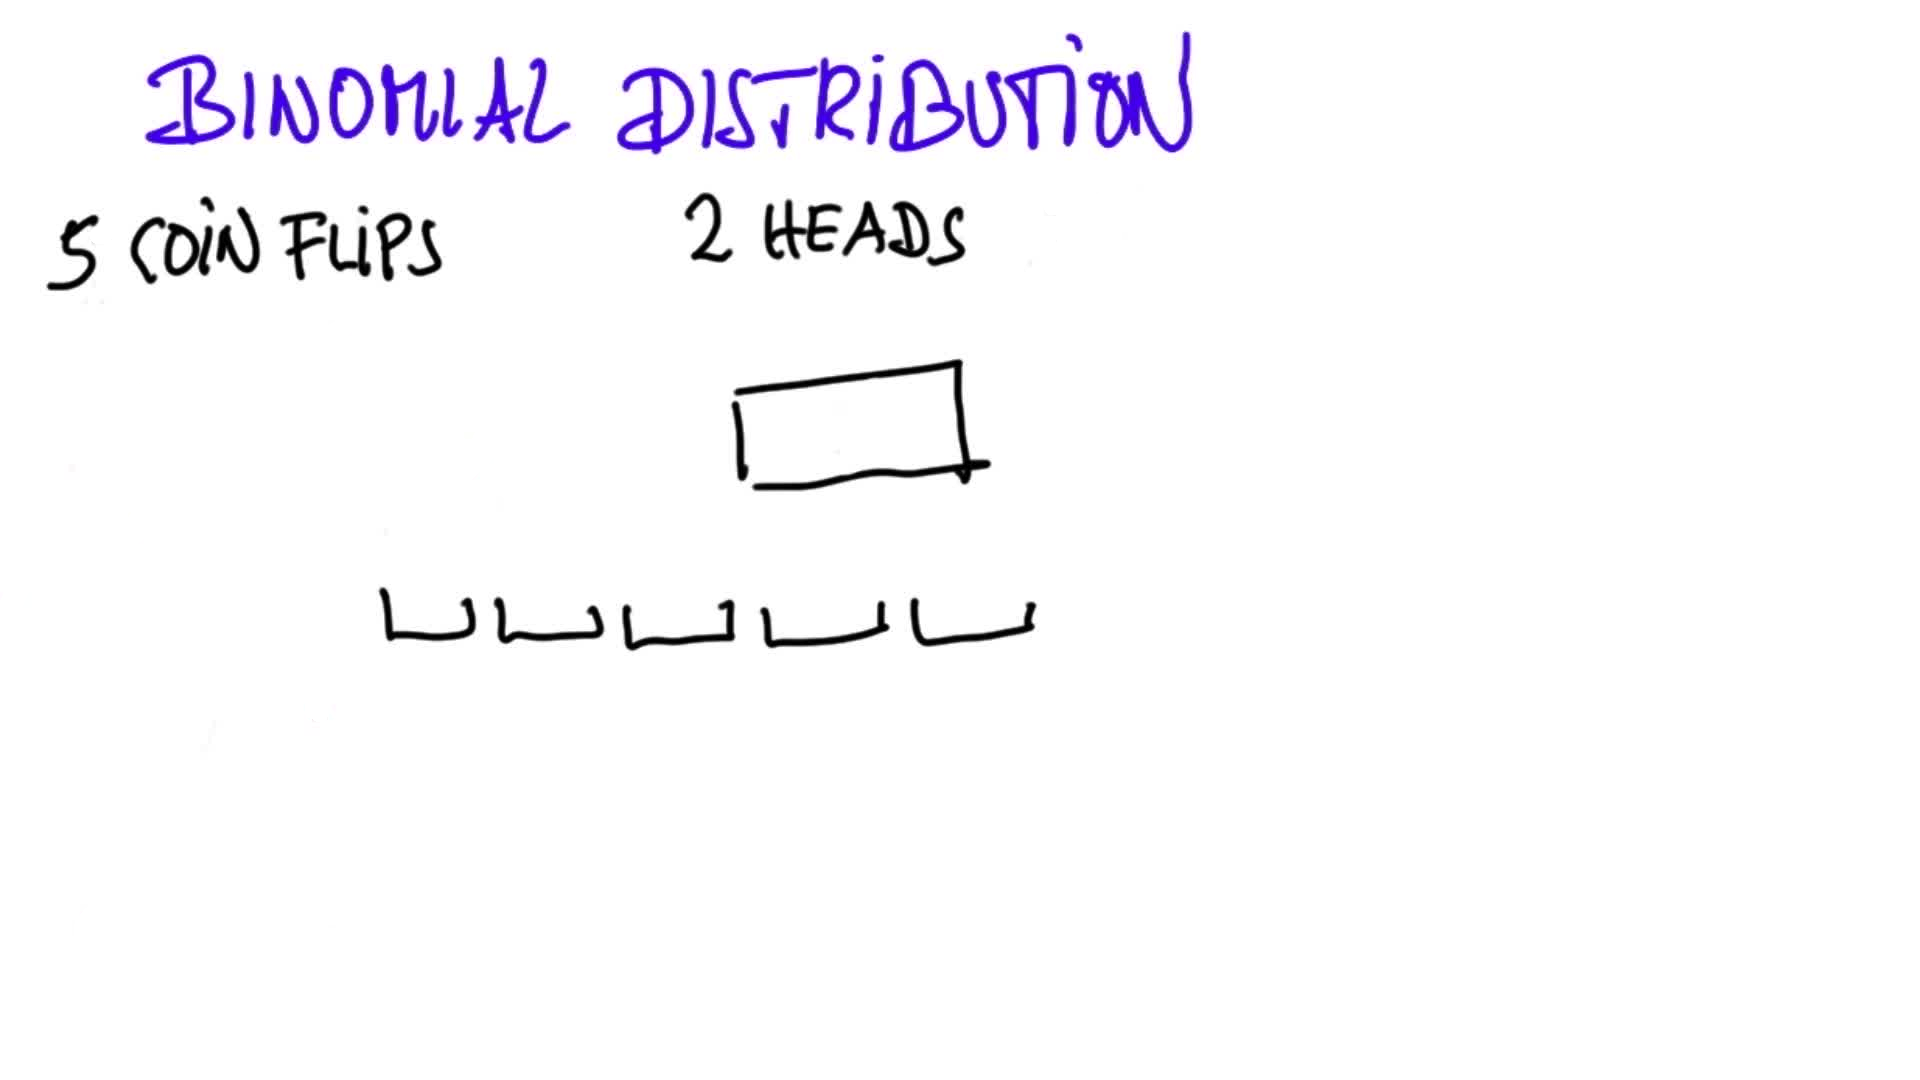 BINOMIAL DISTRIBUTION
5 COIN FLIPS 2 HEADS